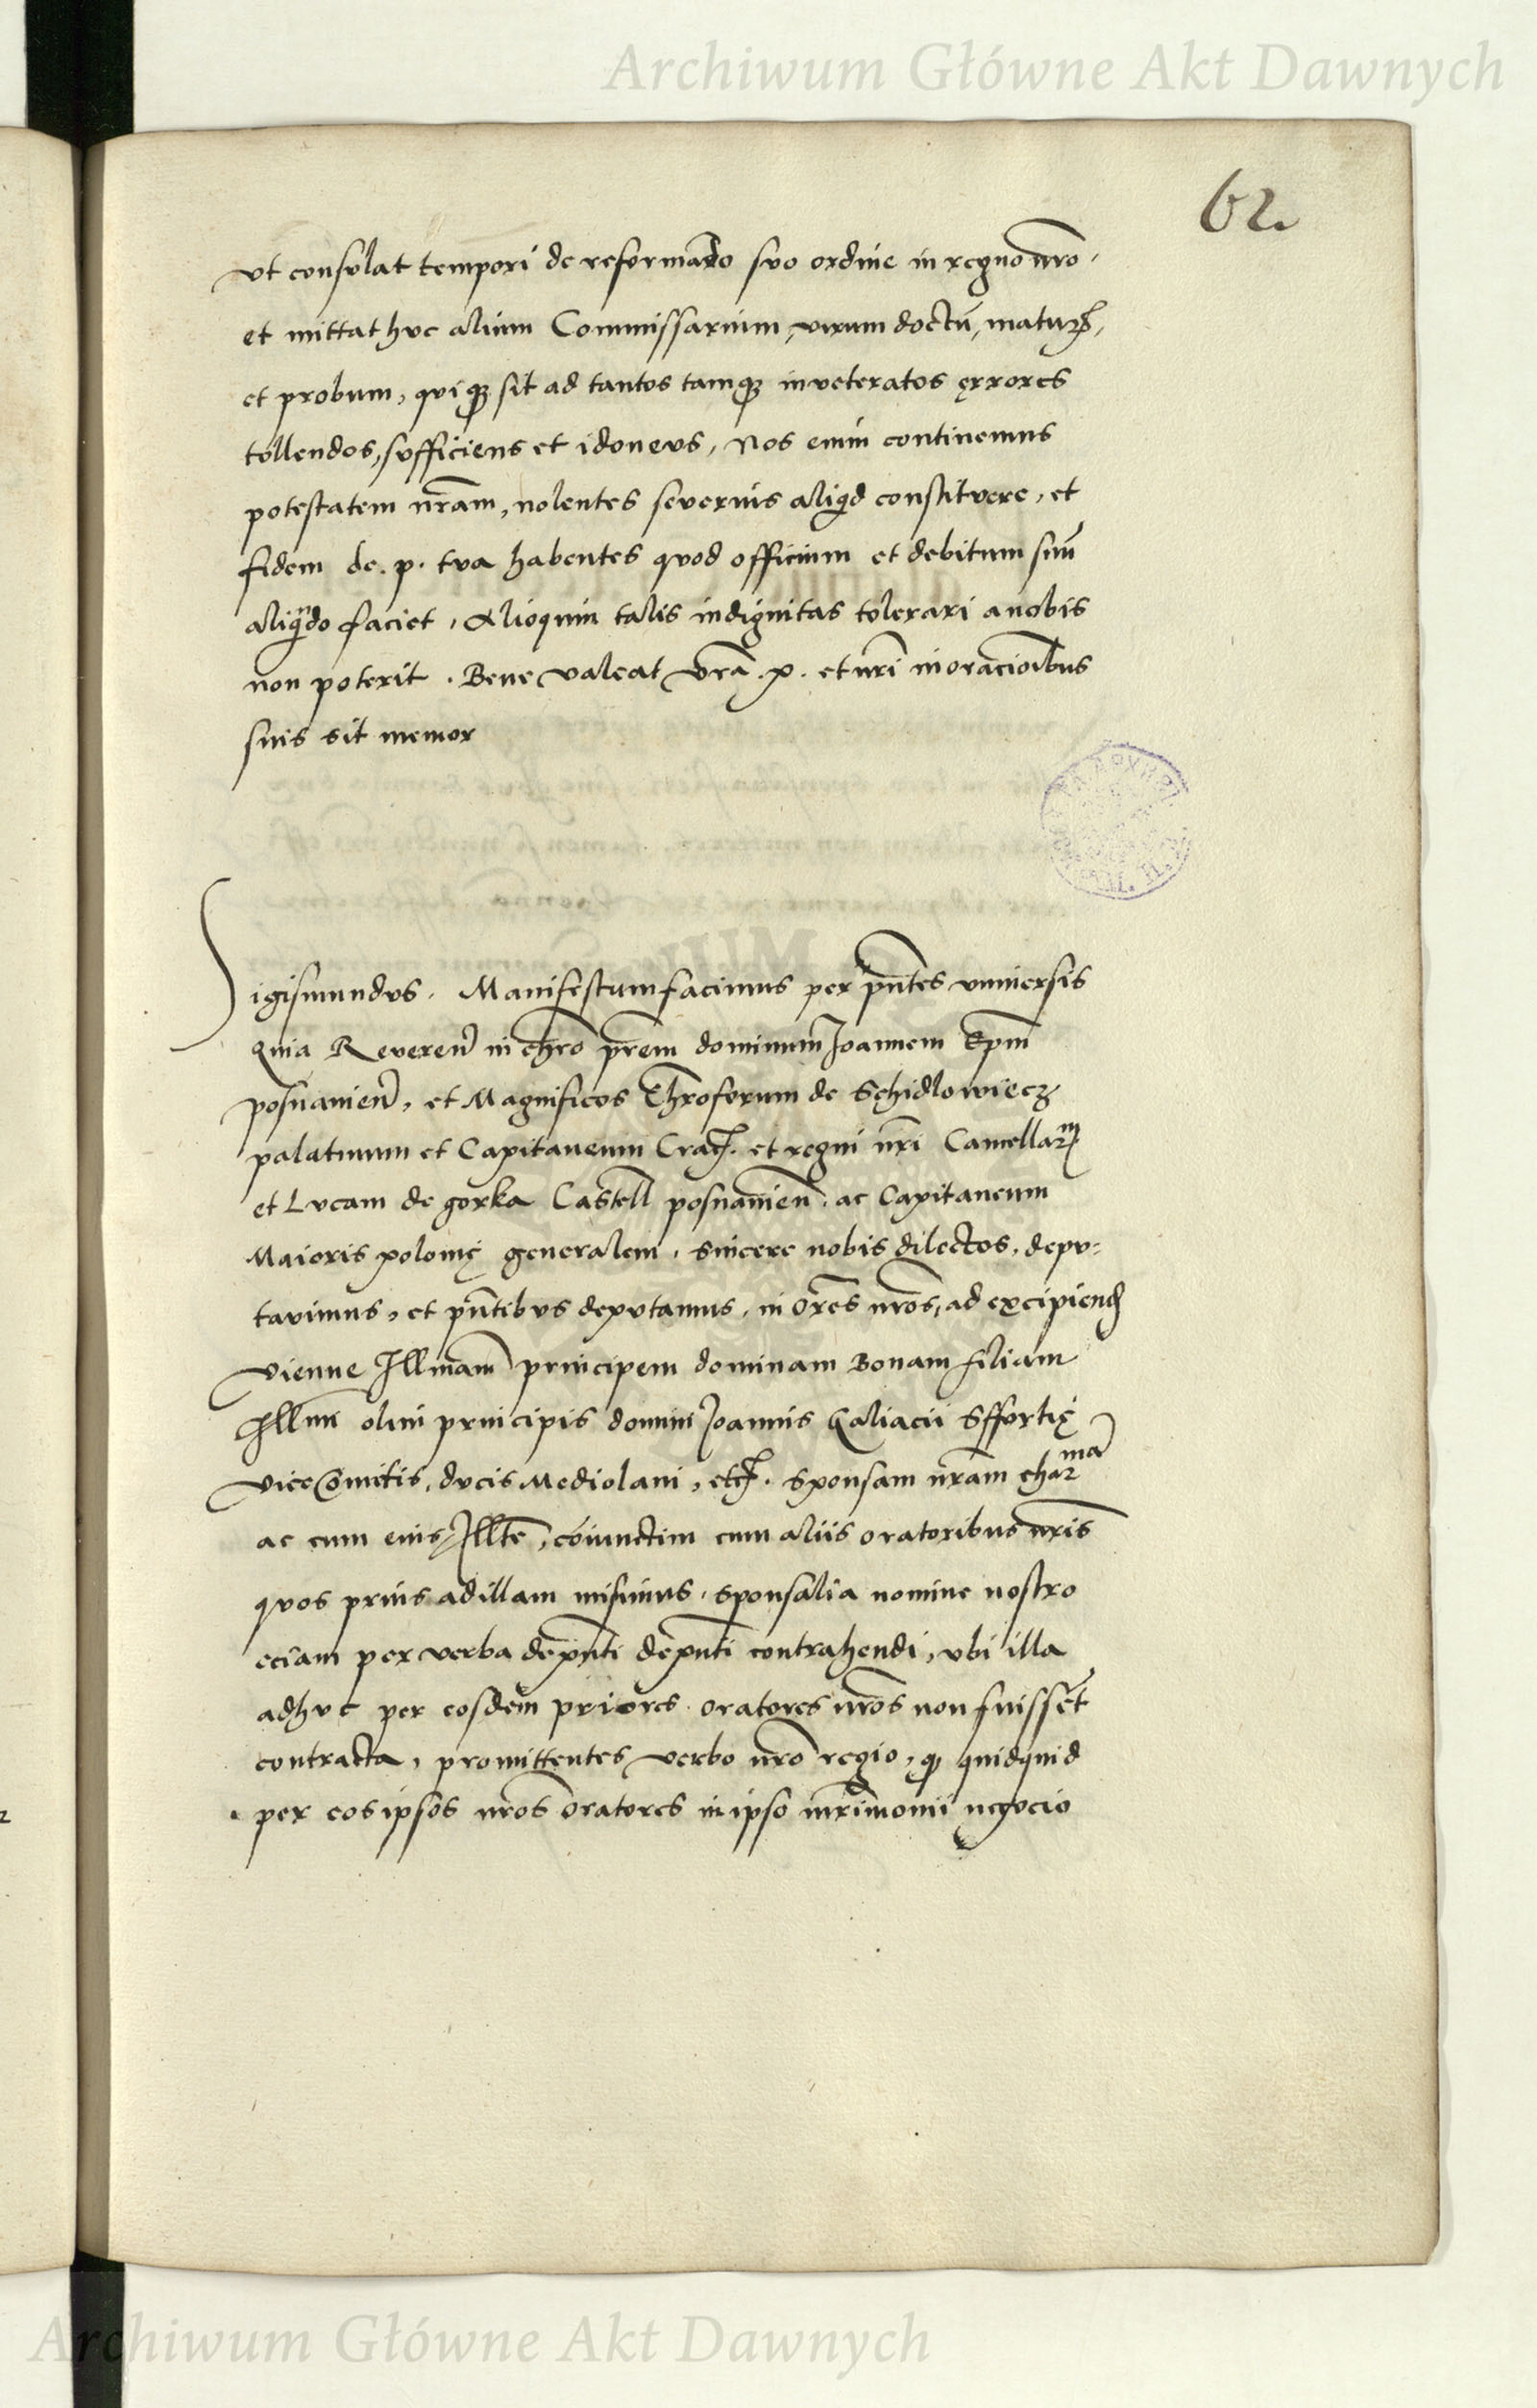 Archiwum Główne Akt Dawnych
62.
vt consulat tempori de reformando suo ordine in regno nro.
et mittat huc alium Commissarium, virum doctū, matur̄,
et probum, quiqꝫ sit ad tantos tamqꝫ inveteratos ęrrores
tollendos, sufficiens et idoneus, Nos enim continemus
potestatem nr̄am, nolentes severius aliqd constituere, et
fidem de. p. tua habentes quod officium et debitum suū
aliqn̄do faciet, Alioquin talis indignitas tolerari a nobis
non poterit. Bene valeat vr̄a. p. et nr̄i in oracioībus
suis sit memor
Sigismundus. Manifestum facimus per pn̄tes vniversis
Quia Reveren̄ in chr̄o pr̄em dominum Joannem Epm̄
posnanien̄, et Magnificos Chr̄oferum de Schidlowiecz
palatinum et Capitaneum Crac̄. et regni nr̄i Cancellar̄m
et Lucam de gorka Castell̄ posnanien̄. ac Capitaneum
Maioris polonię generalem, sincere nobis dilectos, depu=
tavimus, et pn̄tibus deputamus, in Or̄es nr̄os, ad excipiend̄
vienne Illm̄am principem dominam Bonam filiam
Illmi olim principis domini Joannis Galiacii Sffortię
viceComitis, ducis Mediolani, etc̄. sponsam nr̄am char̄ma
ac cum eius Illte, cōiunctim cum aliis oratoribus nr̄is
quos prius ad illam misimus, sponsalia nomine nostro
eciam per verba de pn̄ti de pn̄ti contrahendi, vbi illa
adhuc per eosdem priores oratores nr̄os non fuissēt
contracta, promittentes verbo nr̄o regio, qꝫ quidquid
per eos ipsos nr̄os Oratores in ipso mr̄imonii negocio
Archiwum Główne Akt Dawnych